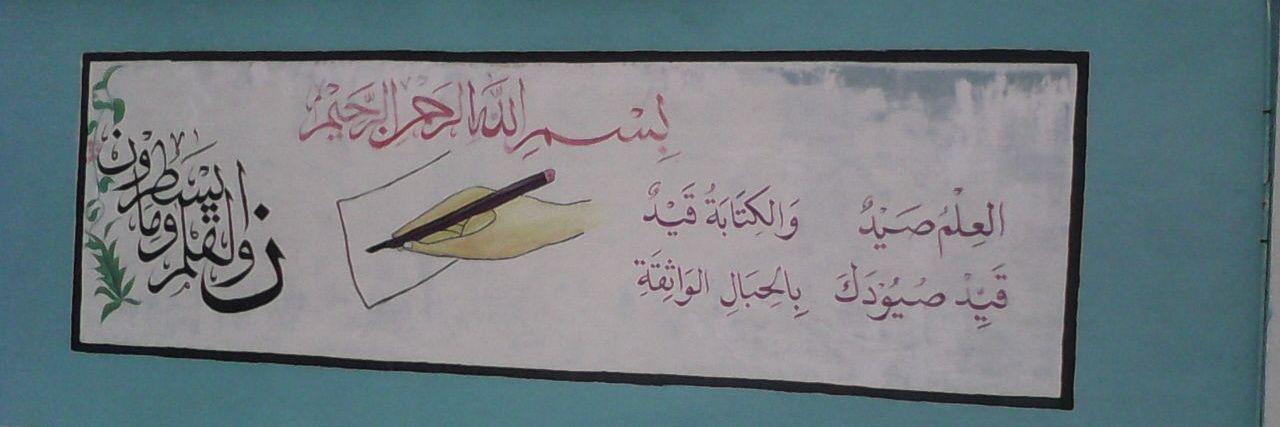 بِسْمِ اللهِ الرَّحْمٰنِ الرَّحِيْمِ
العِلْمُ صَيْدٌ وَالكِتَابَةُ قَيْدٌ
قَيِّدْ صُيُوْدَكَ بِالحِبَالِ الوَاثِقَةِ
ن وَالقَلَمِ وَمَا يَسْطُرُونَ